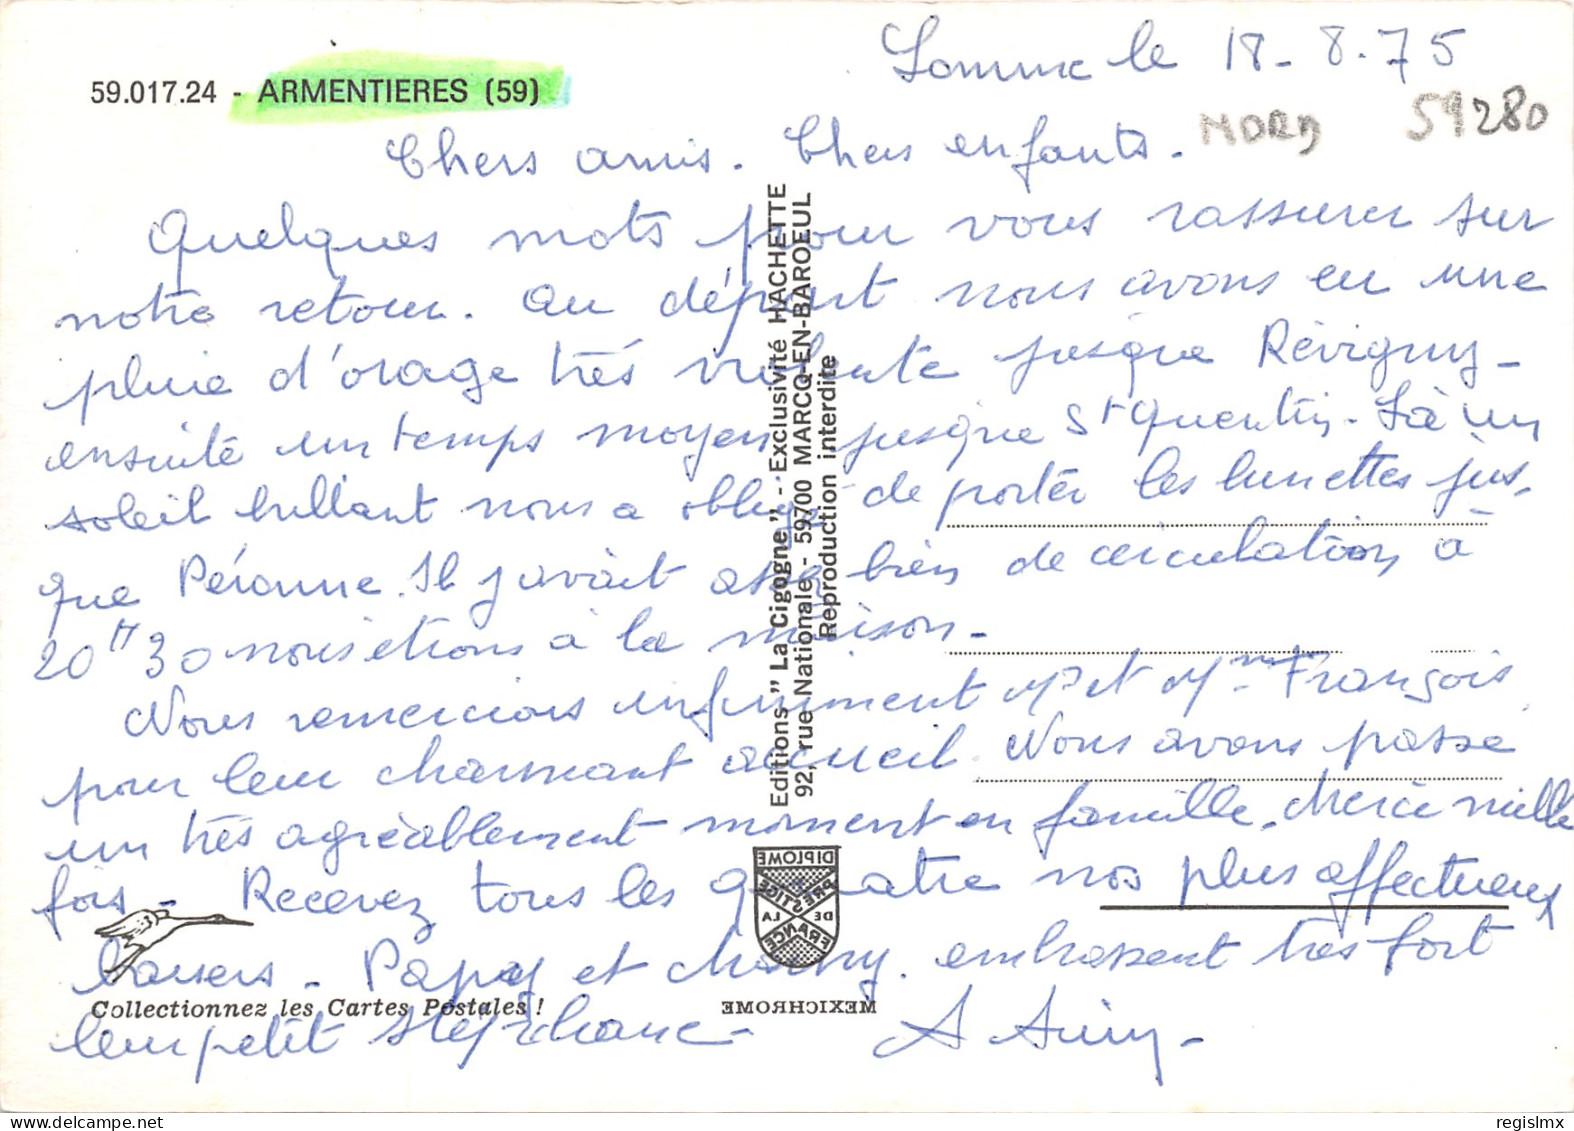 59.017.24 - ARMENTIERES (59)
Somme le 18-8.75
NORD 59280
Chers amis. Chers enfants.
Quelques mots pour vous rassurer sur
notre retour. Au départ nous avons eu une
pluie d'orage très violente jusque Révigny-
ensuite un temps moyen jusque St Quentin. Là un
soleil brillant nous a obligé de porter les lunettes jus-
que Péronne. Il y avait assez bien de circulation à
20H30 nous étions à la maison-
Nous remercions infiniment Mr et Mme François
pour leur charmant accueil. Nous avons passé
un très agréablement moment en famille. Merci mille
fois - Recevez tous les quatre nos plus affectueux
baisers - Papy et Mamy. embrassent très fort
leur petit Stéphane-
Editions "La Cigogne" - Exclusivité HACHETTE
92, rue Nationale - 59700 MARCQ-EN-BAROEUL
Reproduction interdite
DIPLOME
PRESTIGE
DE LA
FRANCE
MEXICHROME
Collectionnez les Cartes Postales !
regislmx